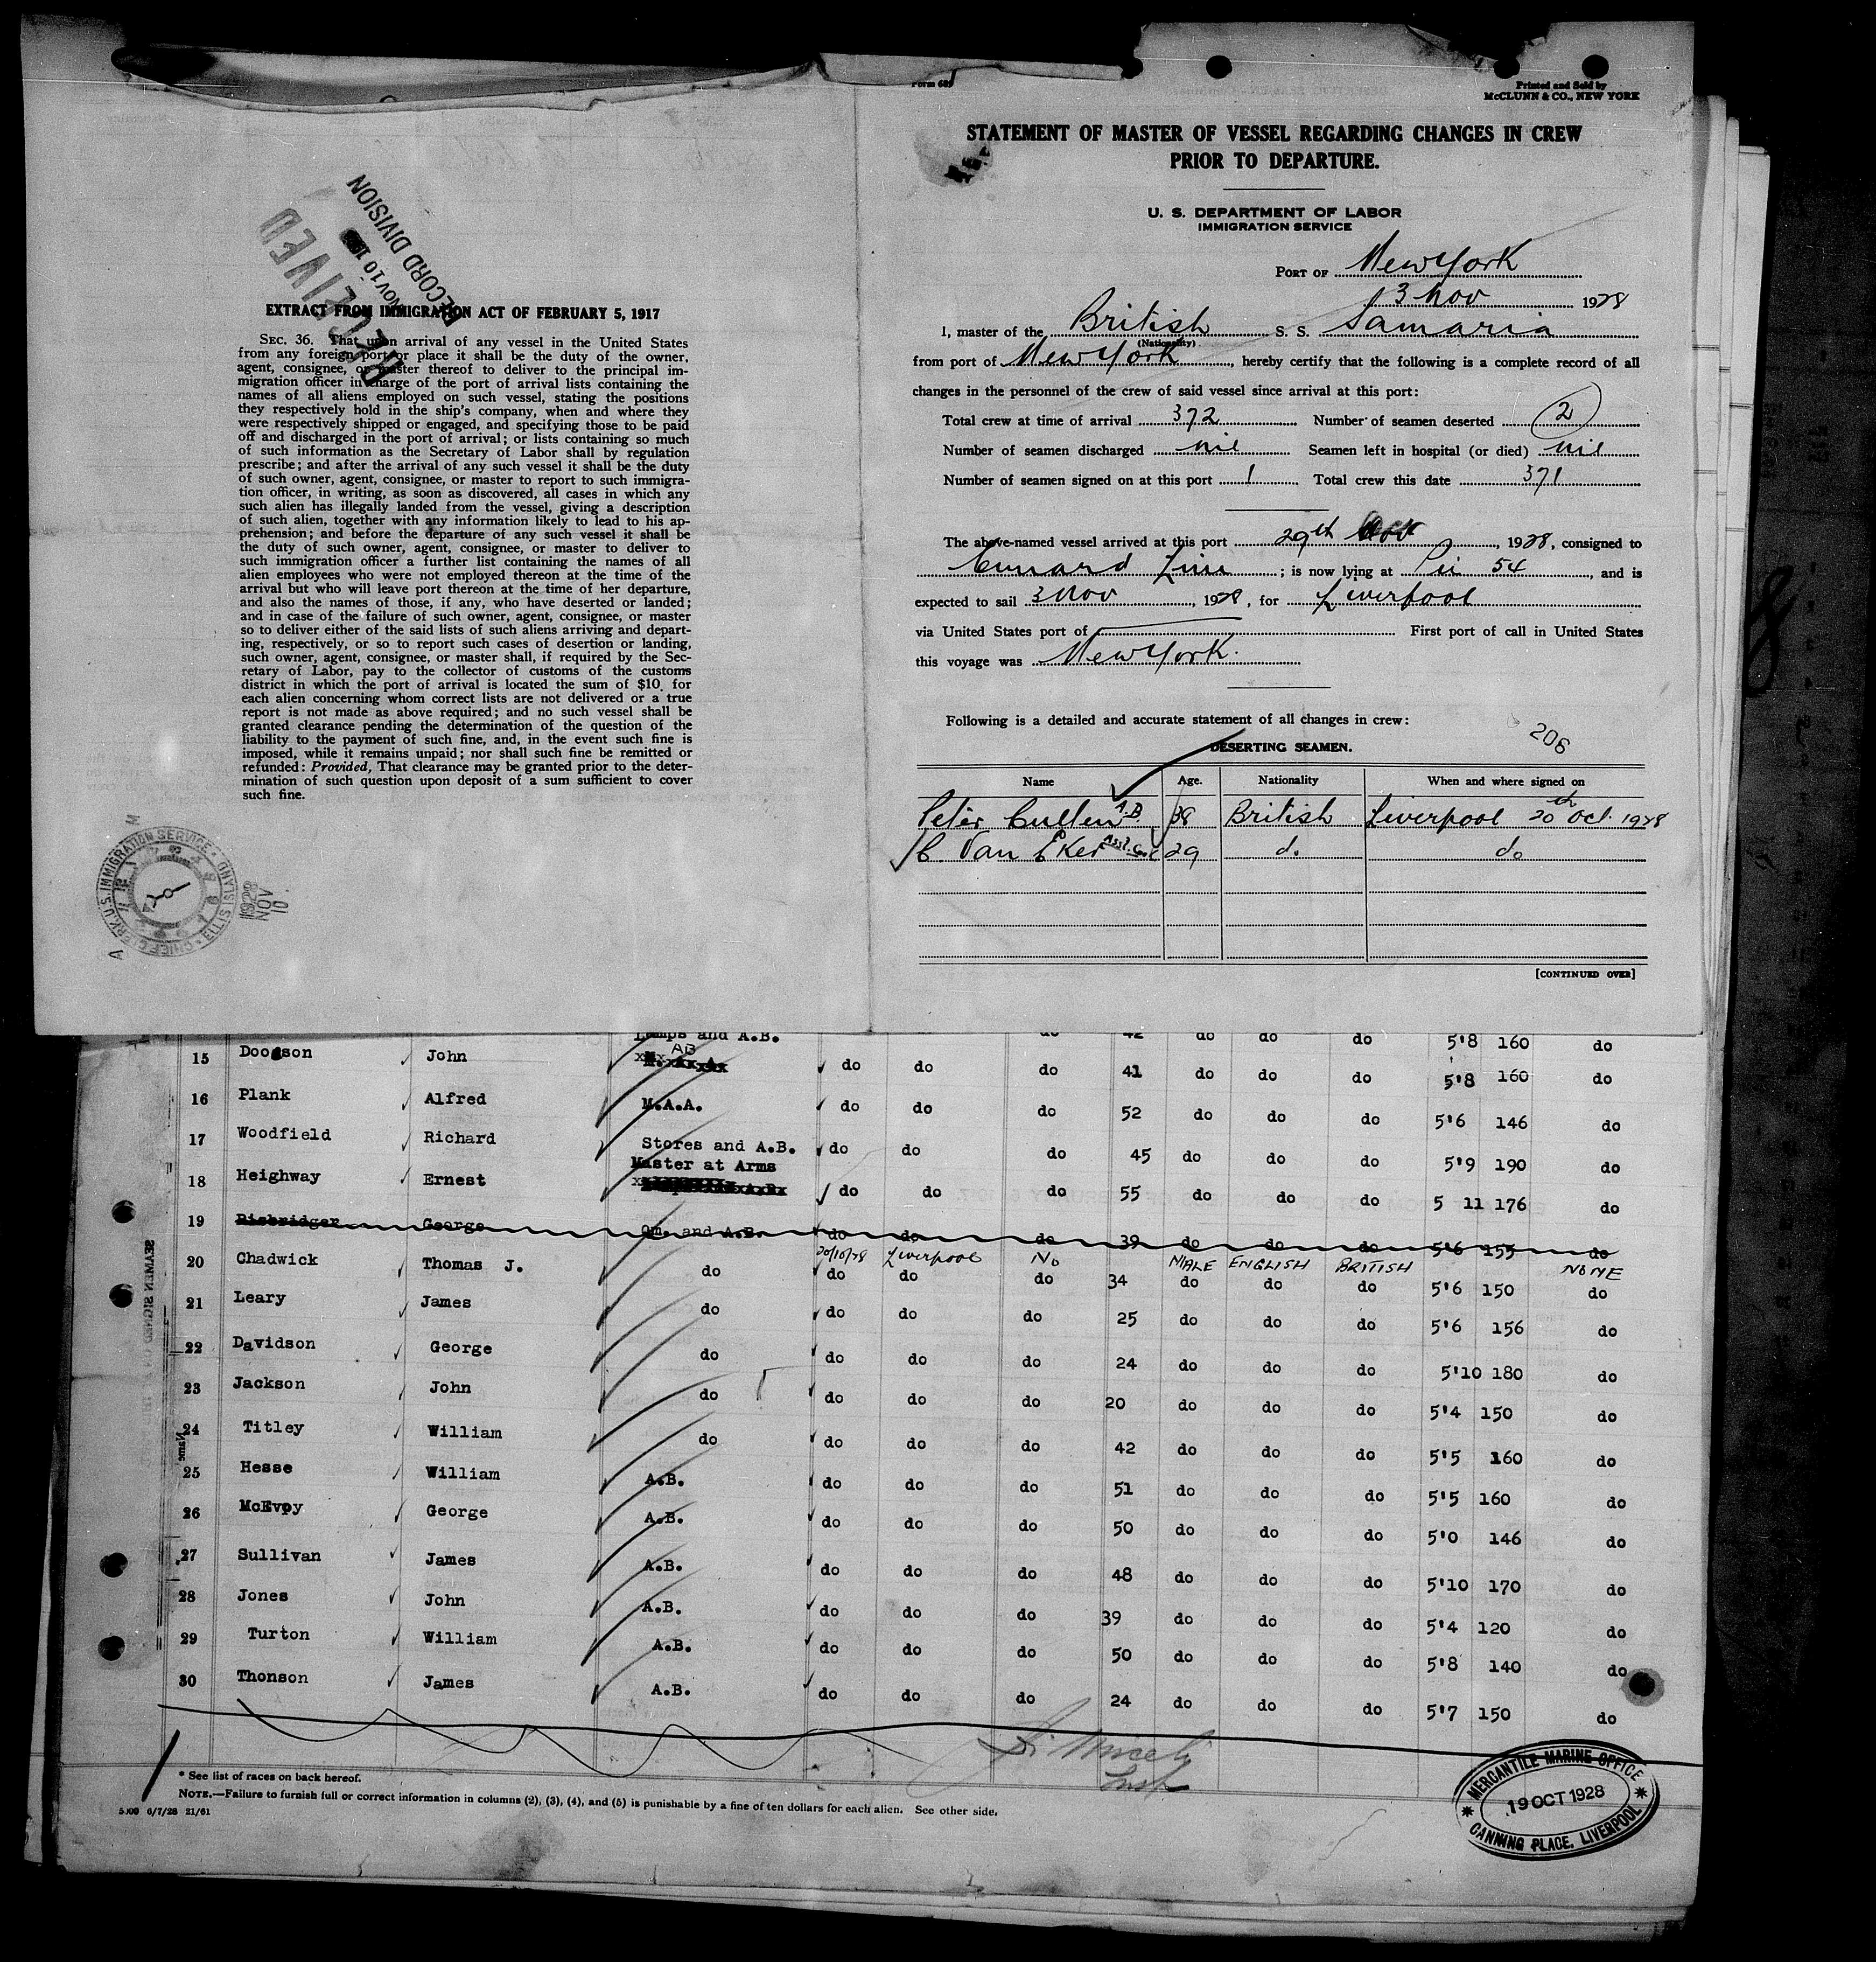 RECEIVED
NOV 10 19
RECORD DIVISION
EXTRACT FROM IMMIGRATION ACT OF FEBRUARY 5, 1917
SEC. 36. That upon arrival of any vessel in the United States
from any foreign port or place it shall be the duty of the owner,
agent, consignee, or master thereof to deliver to the principal im-
migration officer in charge of the port of arrival lists containing the
names of all aliens employed on such vessel, stating the positions
they respectively hold in the ship's company, when and where they
were respectively shipped or engaged, and specifying those to be paid
off and discharged in the port of arrival; or lists containing so much
of such information as the Secretary of Labor shall by regulation
prescribe; and after the arrival of any such vessel it shall be the duty
of such owner, agent, consignee, or master to report to such immigra-
tion officer, in writing, as soon as discovered, all cases in which any
such alien has illegally landed from the vessel, giving a description
of such alien, together with any information likely to lead to his ap-
prehension; and before the departure of any such vessel it shall be
the duty of such owner, agent, consignee, or master to deliver to
such immigration officer a further list containing the names of all
alien employees who were not employed thereon at the time of the
arrival but who will leave port thereon at the time of her departure,
and also the names of those, if any, who have deserted or landed;
and in case of the failure of such owner, agent, consignee, or master
so to deliver either of the said lists of such aliens arriving and depart-
ing, respectively, or so to report such cases of desertion or landing,
such owner, agent, consignee, or master shall, if required by the Sec-
retary of Labor, pay to the collector of customs of the customs
district in which the port of arrival is located the sum of $10 for
each alien concerning whom correct lists are not delivered or a true
report is not made as above required; and no such vessel shall be
granted clearance pending the determination of the question of the
liability to the payment of such fine, and, in the event such fine is
imposed, while it remains unpaid; nor shall such fine be remitted or
refunded: Provided, That clearance may be granted prior to the deter-
mination of such question upon deposit of a sum sufficient to cover
such fine.
CHIEF CLERK, U.S. IMMIGRATION SERVICE · ELLIS ISLAND
1928 NOV 10
A M
Form 689
Printed and Sold by
McCLUNN & CO., NEW YORK
STATEMENT OF MASTER OF VESSEL REGARDING CHANGES IN CREW
PRIOR TO DEPARTURE.
U. S. DEPARTMENT OF LABOR
IMMIGRATION SERVICE
PORT OF New York
3 Nov 1928
I, master of the British S. S. Samaria
(Nationality)
from port of New York, hereby certify that the following is a complete record of all
changes in the personnel of the crew of said vessel since arrival at this port:
Total crew at time of arrival 372 Number of seamen deserted 2
Number of seamen discharged nil Seamen left in hospital (or died) nil
Number of seamen signed on at this port 1 Total crew this date 371
The above-named vessel arrived at this port 29th, 1928, consigned to
Cunard Line; is now lying at Pier 54, and is
expected to sail 3 Nov, 1928, for Liverpool
via United States port of First port of call in United States
this voyage was New York.
Following is a detailed and accurate statement of all changes in crew:
206
DESERTING SEAMEN.
Name Age. Nationality When and where signed on
Peter Cullen A.B. 38 British Liverpool 20th Oct. 1928
C. Van Eker 29 do do
[CONTINUED OVER]
8
Lamps and A.B. do 42 do do do 5'8 160 do
15 Doogson John AB do do do 41 do do do 5'8 160 do
16 Plank Alfred M.A.A. do do do 52 do do do 5'6 146 do
17 Woodfield Richard Stores and A.B. do do do 45 do do do 5'9 190 do
Master at Arms
18 Heighway Ernest do do do 55 do do do 5 11 176 do
19 Risbridger George Qm. and A.B. do do do 39 do do do 5'6 155 do
20/10/28 Liverpool No MALE ENGLISH BRITISH NONE
20 Chadwick Thomas J. do do do do 34 do do do 5'6 150 do
21 Leary James do do do do 25 do do do 5'6 156 do
22 Davidson George do do do do 24 do do do 5'10 180 do
23 Jackson John do do do do 20 do do do 5'4 150 do
24 Titley William do do do do 42 do do do 5'5 160 do
25 Hesse William A.B. do do do 51 do do do 5'5 160 do
26 McEvoy George A.B. do do do 50 do do do 5'0 146 do
27 Sullivan James A.B. do do do 48 do do do 5'10 170 do
28 Jones John A.B. do do do 39 do do do 5'4 120 do
29 Turton William A.B. do do do 50 do do do 5'8 140 do
30 Thonson James A.B. do do do 24 do do do 5'7 150 do
Name
* See list of races on back hereof.
NOTE.—Failure to furnish full or correct information in columns (2), (3), (4), and (5) is punishable by a fine of ten dollars for each alien. See other side.
5000 6/7/28 21/61
Insp
MERCANTILE MARINE OFFICE
19 OCT 1928
CANNING PLACE, LIVERPOOL